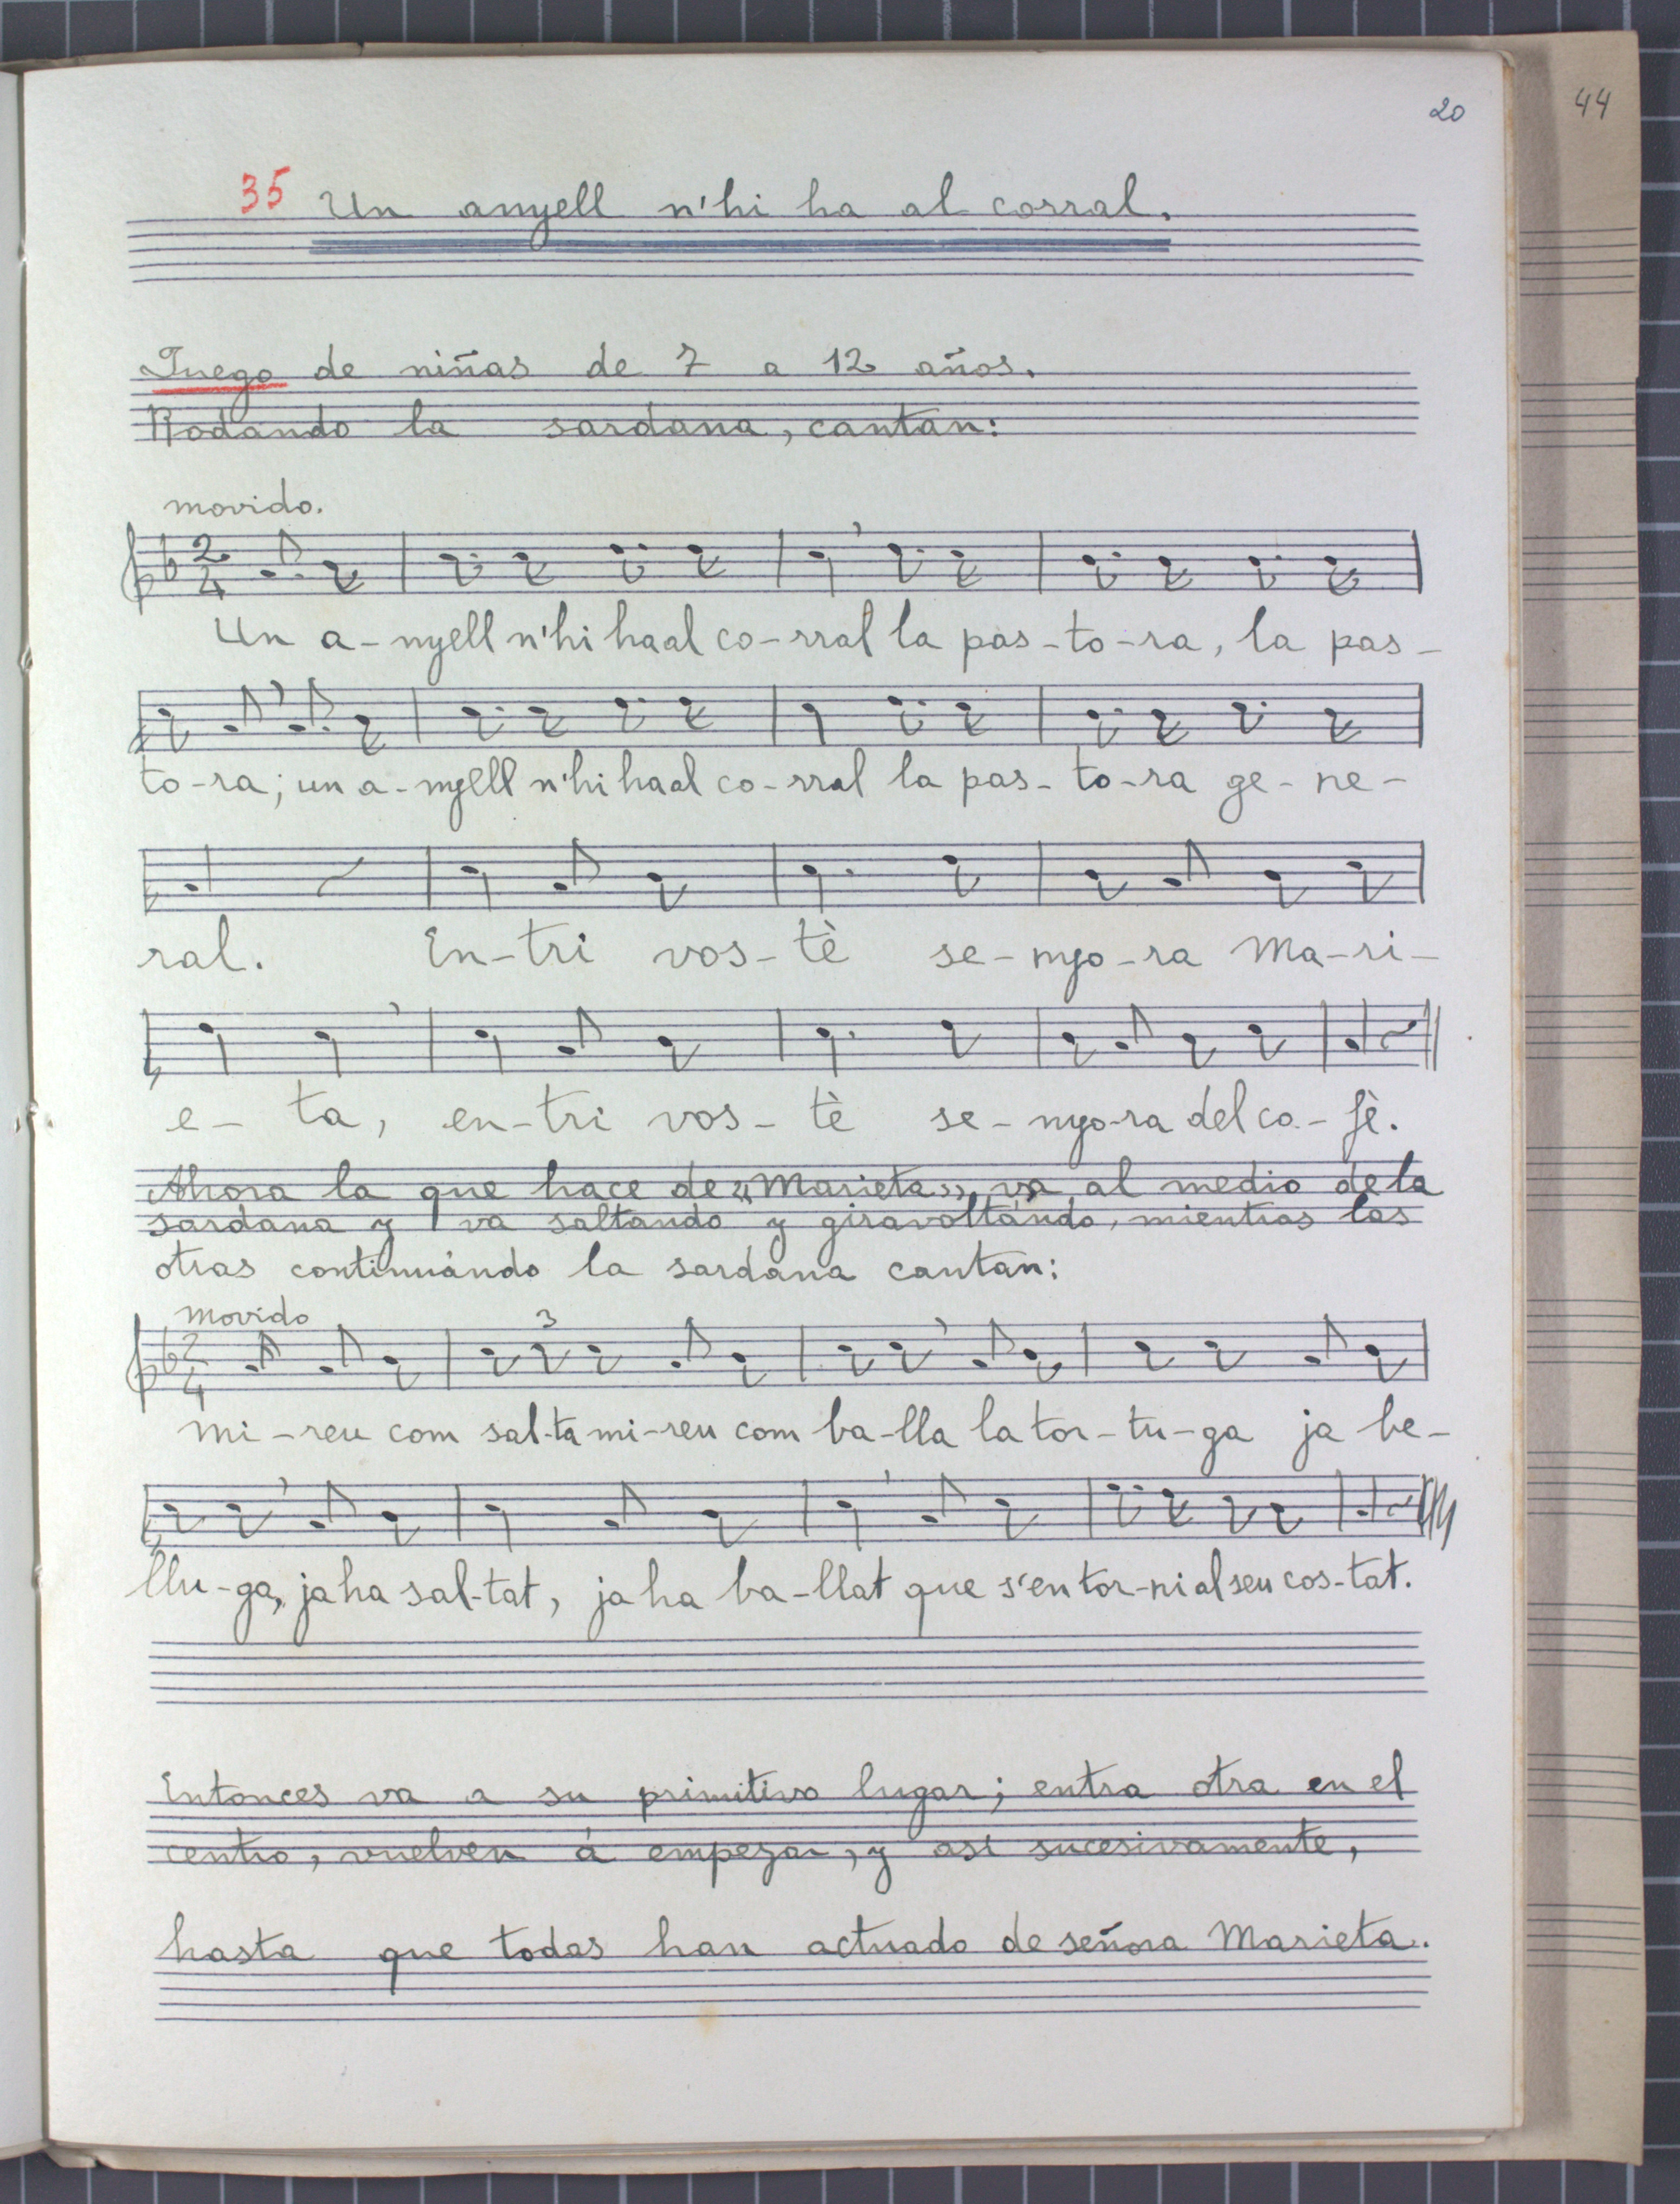 20
44
35 Un anyell n'hi ha al corral.
Juego de niñas de 7 a 12 años.
Rodando la sardana, cantan:
movido.
2
4
Un a-nyell n'hi ha al co-rral la pas-to-ra, la pas-
to-ra; un a-nyell n'hi ha al co-rral la pas-to-ra ge-ne-
ral. En-tri vos-tè se-nyo-ra Ma-ri-
e-ta, en-tri vos-tè se-nyo-ra del ca-fè.
Ahora la que hace de "Marieta", va al medio de la
sardana y va saltando y giravoltando, mientras las
otras continuándo la sardana cantan:
movido
3
2
4
Mi-reu com sal-ta mi-reu com ba-lla la tor-tu-ga ja be-
llu-ga, ja ha sal-tat, ja ha ba-llat que s'en tor-ni al seu cos-tat.
Entonces va a su primitivo lugar; entra otra en el
centro, vuelven á empezar, y así sucesivamente,
hasta que todas han actuado de señora Marieta.